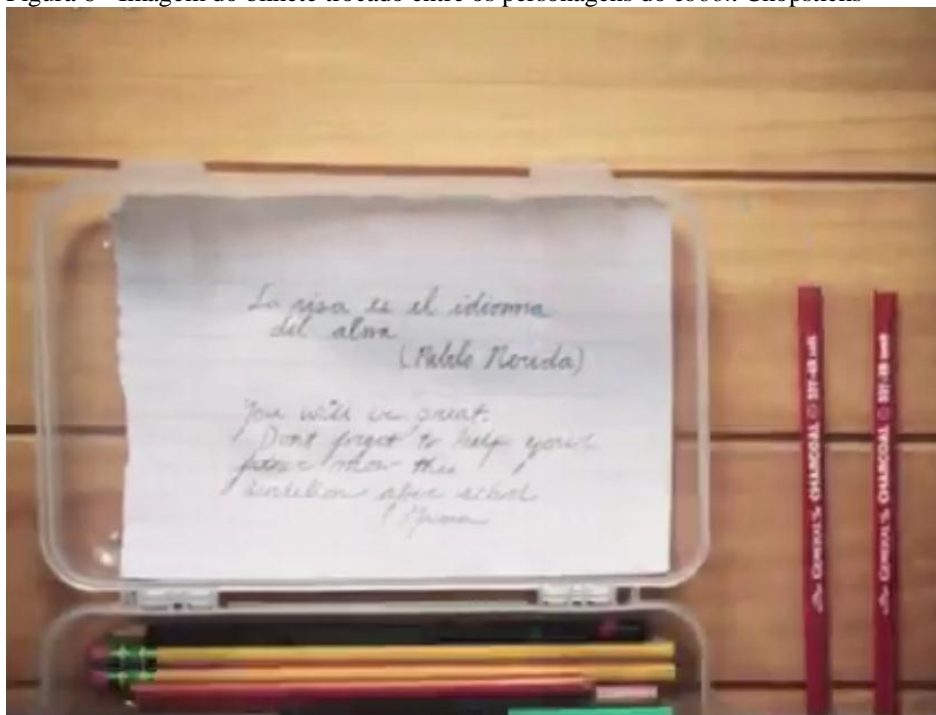 La risa es el idioma
del alma
(Pablo Neruda)
You will be great.
Dont forget to help your
father mow the
after school
Mama
General's CHARCOAL 557-4B soft
General's CHARCOAL